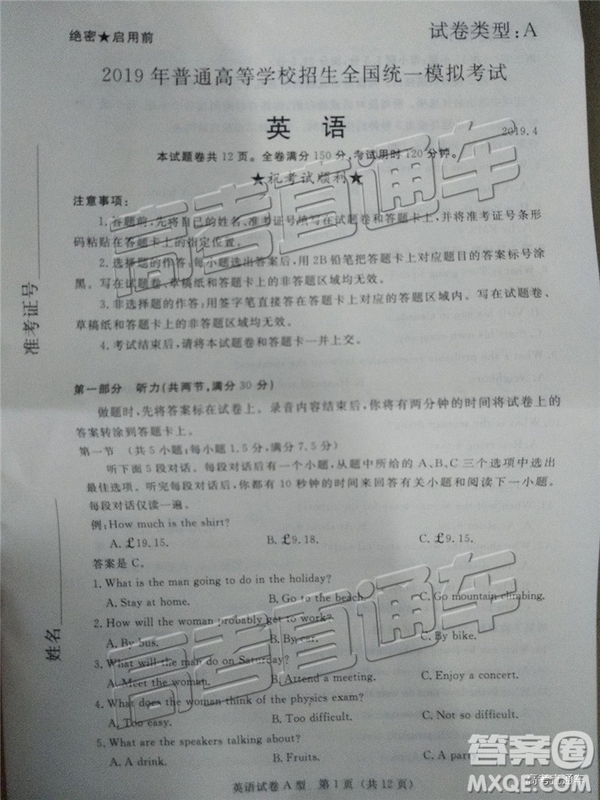 绝密★启用前
试卷类型:A
2019年普通高等学校招生全国统一模拟考试
英语
2019.4
本试题卷共12页。全卷满分150分,考试用时120分钟。
★祝考试顺利★
注意事项:
1.答题前,先将自己的姓名、准考证号填写在试题卷和答题卡上,并将准考证号条形
码粘贴在答题卡上的指定位置。
2.选择题的作答:每小题选出答案后,用2B铅笔把答题卡上对应题目的答案标号涂
黑。写在试题卷、草稿纸和答题卡上的非答题区域均无效。
3.非选择题的作答:用签字笔直接答在答题卡上对应的答题区域内。写在试题卷、
草稿纸和答题卡上的非答题区域均无效。
4.考试结束后,请将本试题卷和答题卡一并上交。
第一部分 听力(共两节,满分30分)
做题时,先将答案标在试卷上。录音内容结束后,你将有两分钟的时间将试卷上的
答案转涂到答题卡上。
第一节 (共5小题;每小题1.5分,满分7.5分)
听下面5段对话。每段对话后有一个小题,从题中所给的A、B、C三个选项中选出
最佳选项。听完每段对话后,你都有10秒钟的时间来回答有关小题和阅读下一小题。
每段对话仅读一遍。
例:How much is the shirt?
A. £19.15. B. £9.18. C. £9.15.
答案是C。
1. What is the man going to do in the holiday?
A. Stay at home. B. Go to the beach. C. Go mountain climbing.
2. How will the woman probably get to work?
A. By bus. B. By car. C. By bike.
3. What will the man do on Saturday?
A. Meet the woman. B. Attend a meeting. C. Enjoy a concert.
4. What does the woman think of the physics exam?
A. Too easy. B. Too difficult. C. Not too difficult.
5. What are the speakers talking about?
A. Drink. B. Fruits. C. A par
英语试卷A型 第1页(共12页)
准考证号
姓名
高考直通车
高考直通车
答案圈
MXQE.COM
高考直通车